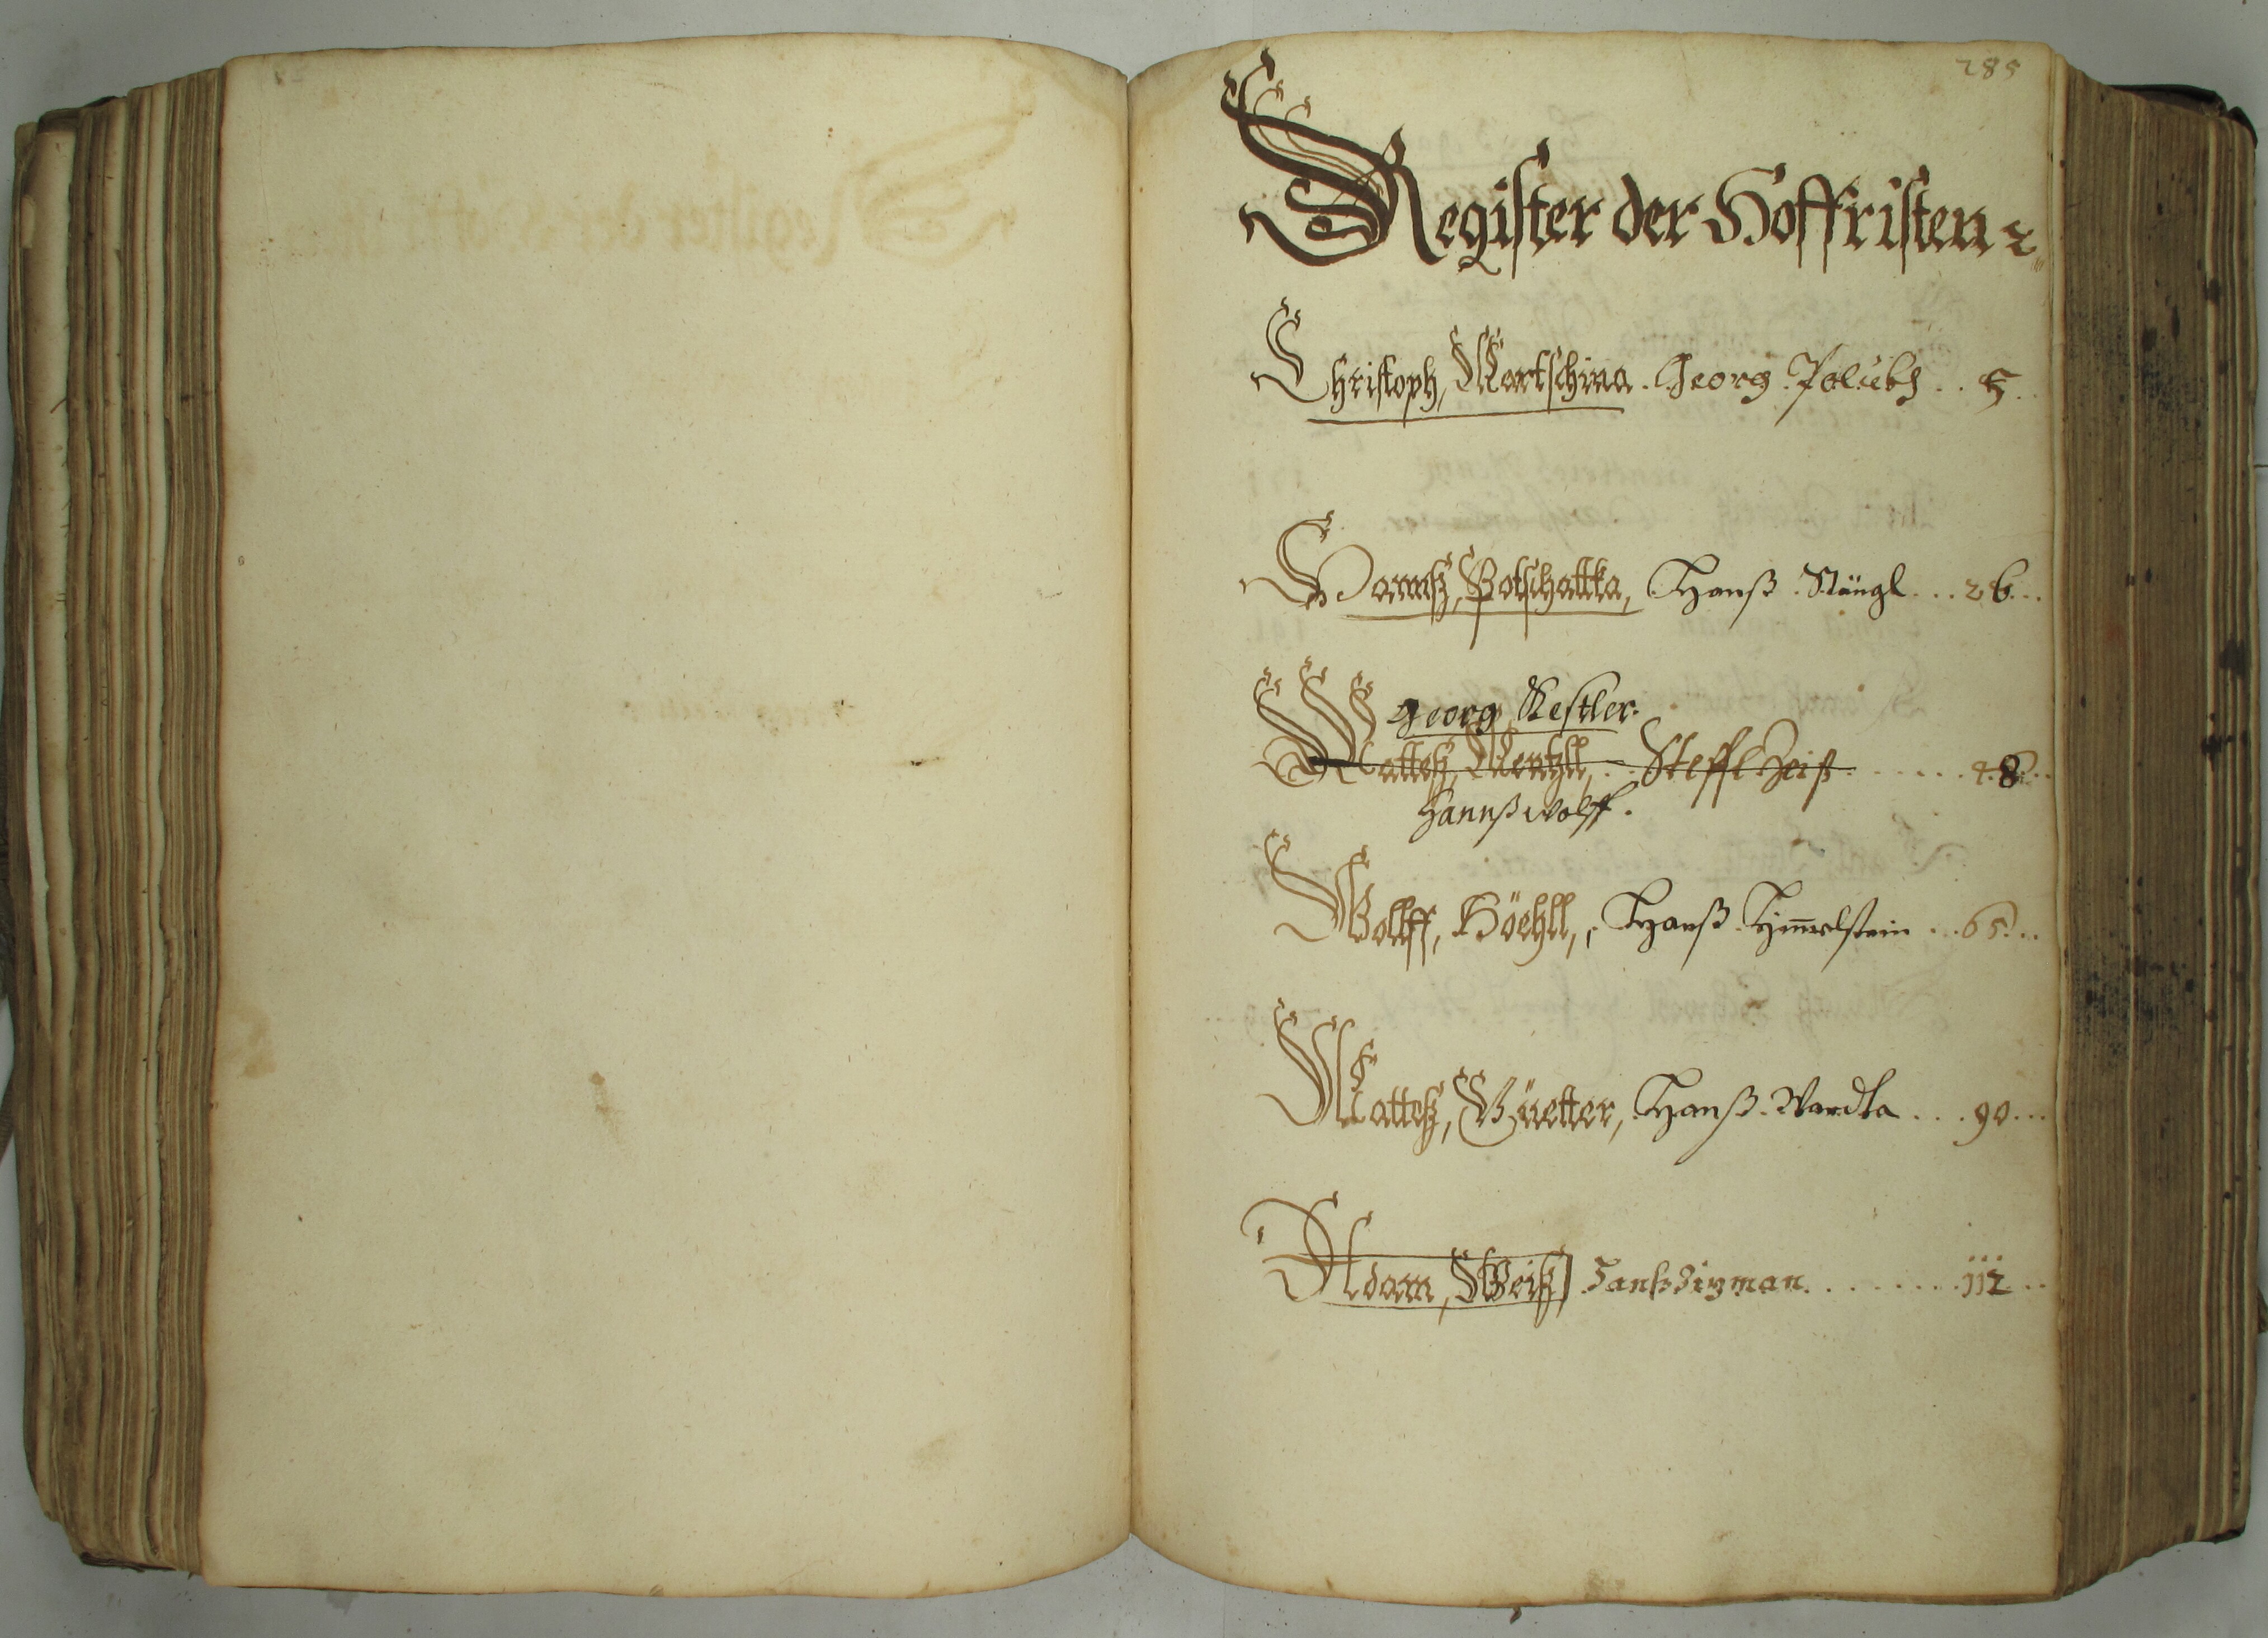 285
Register der Hoffristen
Christoph, Martschina. Georg Polubs .. 5.
Hannß, Potschattka, Hanß Stängl ... 26...
Georg Kestler.
Matteß, Mentzll, Steffl Zeiß ...... 48...
Hannß Wolff.
Wollff, Höehll, Hanß Himelstein ... 65...
Matteß, Güetter, Hanß Wardla ... 90...
Adam, Weiß Hanß Zisman ........ 112 ..